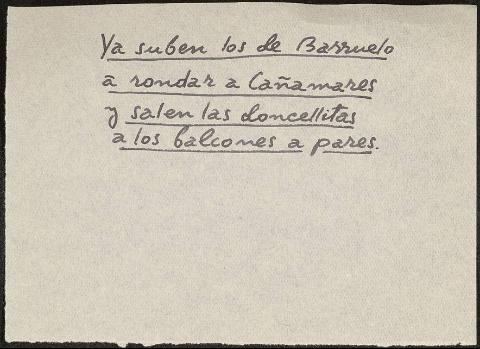 Ya suben los de Barruelo
a rondar a Cañamares
y salen las doncellitas
a los balcones a pares.